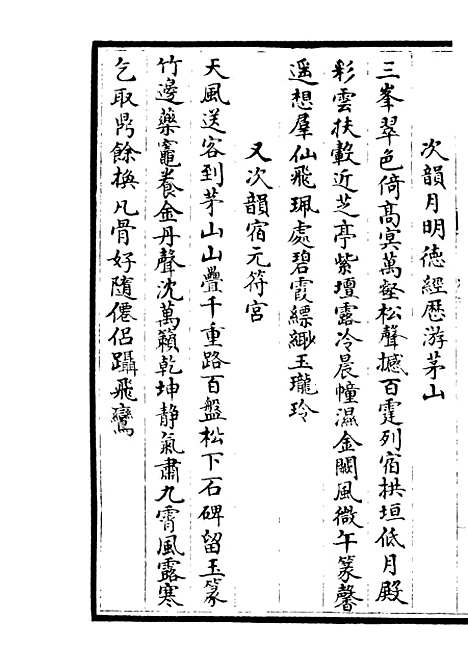 次韻月明德經歷游茅山
三峯翠色倚髙㝠萬壑松聲撼百霆列宿拱垣低月殿
彩雲扶轂近芝亭紫壇露冷晨幢濕金闕風微午篆馨
遥想羣仙飛珮處碧霞縹緲玉瓏玲
又次韻宿元符宫
天風送客到茅山山疊千重路百盤松下石碑留玉篆
竹邊藥竈養金丹聲沈萬籟乾坤静氣肅九霄風露寒
乞取鼎餘換凡骨好隨僊侣躡飛鸞